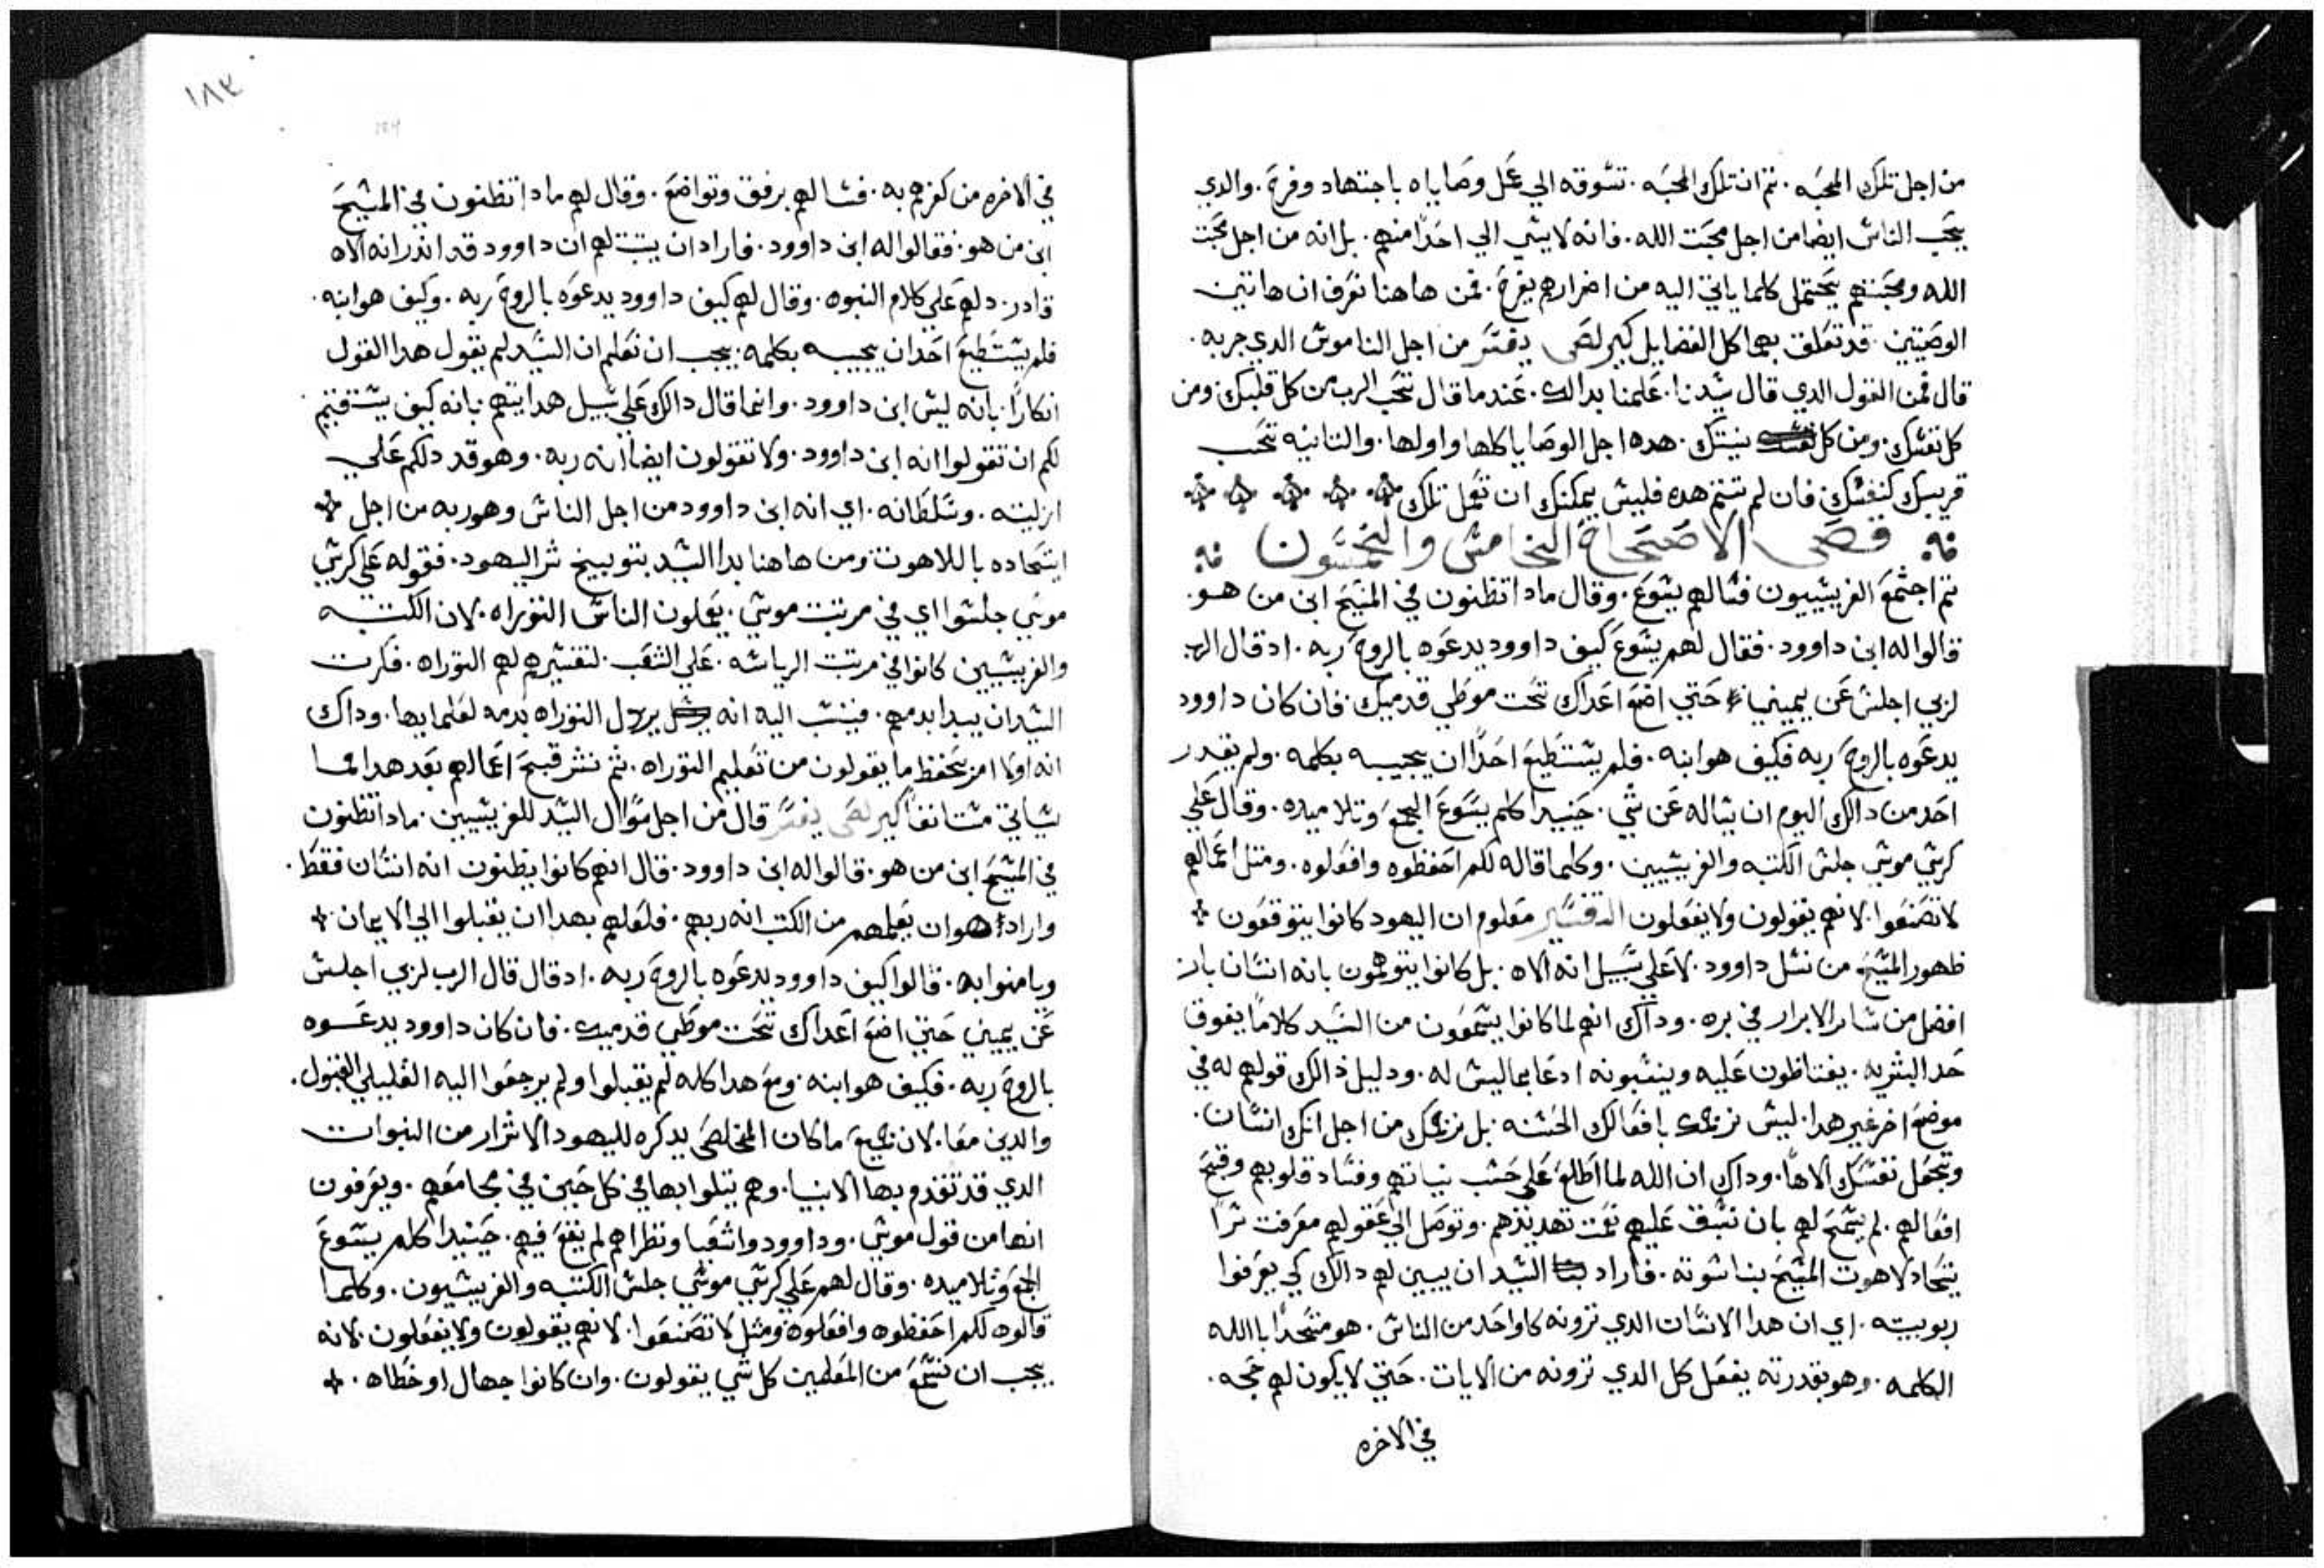 من اجل تلك المحبه . تم ان تلك المحبه . تسوقه الي عمل وصاياه باجتهاد وفرح . والدي
يحب الناس ايضا من اجل محبت الله . فانه لا يسي الي احدًا منهم . بل انه من اجل محبت
الله ومحبتهم يحتمل كلما ياتي اليه من اضرارهم بفرح . فمن هاهنا نعرف ان هاتين
الوصيتين . قد تعلق بهما كل الفضايل كيرلص يفسر من اجل الناموس الدي جربه .
قال فمن القول الدي قال سيدنا . علمنا بدالك . عندما قال تحب الرب من كل قلبك ومن
كل نفسك . ومن كل نيتك . هده اجل الوصايا كلها واولها . والتانيه تحب
قريبك كنفسك فان لم تتم هده فليس يمكنك ان تعمل تلك
فصل الاصحاح الخامس والخمسون
تم اجتمع الفريسيون فسالهم يسوع . وقال مادا تظنون في المسيح ابن من هو .
قالوا له ابن داوود . فقال لهم يسوع كيف داوود يدعوه بالروح ربه . اد قال الرب
لربي اجلس عن يميني حتي اضع اعداك تحت موطي قدميك . فان كان داوود
يدعوه بالروح ربه فكيف هو ابنه . فلم يستطيع احدًا ان يجيبه بكلمه . ولم يقدر
احد من دالك اليوم ان يساله عن شي . حينيدا كلم يسوع الجمع وتلاميده . وقال علي
كرسي موسي جلس الكتبه والفريسيين . وكلما قاله لكم احفظوه وافعلوه . ومتل اعمالهم
لا تصنعوا . لانهم يقولون ولا يفعلون التفسير معلوم ان اليهود كانوا يتوقعون
ظهور المسيح من نسل داوود . لا علي سبيل انه الاه . بل كانوا يتوهمون بانه انسان بار
افضل من ساير الابرار في بره . وداك انهم لما كانوا يسمعون من السيد كلامًا يفوق
حد البشريه . يغتاظون عليه وينسبونه ادعا بما ليس له . ودليل دالك قولهم له في
موضع اخر غير هدا . ليس نرجمك بافعالك الحسنه . بل نرجمك من اجل انك انسان .
وتجعل نفسك الاهًا . وداك ان الله لما اطلع علي حسب نياتهم وفساد قلوبهم وقبح
افعالهم . لم يسمح لهم بان تسبق عليهم وتوصل الي عقولهم معرفت سر
اتحاد لاهوت المسيح بناسوته . فاراد السيد ان يبين لهم دالك كي يعرفوا
ربوبيته . اي ان هدا الانسان الدي ترونه كاواحد من الناس . هو متحدًا باالله
الكلمه . وهو بقدرته يفعل كل الدي ترونه من الايات . حتي لا يكون لهم حجه .
في الاخره
١٨٣
في الاخره من كفرهم به . فسالهم برفق وتواضع . وقال لهم مادا تظنون في المسيح
ابن من هو . فقالوا له ابن داوود . فاراد ان يتبت لهم ان داوود قد اندر انه الاه
قادر . دلهم علي كلام النبوه . وقال لهم كيف داوود يدعوه بالروح ربه . وكيف هو ابنه .
فلم يستطيع احد ان يجيبه بكلمه . يجب ان نعلم ان السيد لم يقول هدا القول
انكارًا . بانه ليس ابن داوود . وانما قال دالك علي سبيل هدايتهم . بانه كيف يستقيم
لكم ان تقولوا انه ابن داوود . ولا تقولون ايضا انه ربه . وهو قد دلكم علي
ازليته . وسلطانه . اي انه ابن داوود من اجل الناس وهو ربه من اجل
ايتحاده باللاهوت ومن هاهنا بدا السيد بتوبيخ شر اليهود . فقوله علي كرسي
موسي جلسوا اي في مرتبت موسي . يعلمون الناس التوراه . لان الكتبه
والفريسيين كانوا في مرتبت الرياسه . علي الشعب . لتفسيرهم لهم التوراه . فكرت
السيد ان يبدا بدمهم . فينسب اليه انه يردل التوراه بدمه لعلمايها . وداك
انه اولا امر بحفظ ما يقولون من تعليم التوراه . تم نشر قبح اعمالهم بعد هدا لما
سياتي مستانفًا كيرلص يفسر قال من اجل سوال السيد للفريسيين . مادا تظنون
في المسيح ابن من هو . قالوا له ابن داوود . قال انهم كانوا يظنون انه انسان فقط .
واراد هو ان يعلمهم من الكتب انه ربهم . فلعلهم بهدا ان يقبلوا الي الايمان
ويامنوا به . قالوا كيف داوود يدعوه بالروح ربه . اد قال قال الرب لربي اجلس
عن يميني حتي اضع اعداك تحت موطي قدميك . فان كان داوود يدعوه
بالروح ربه . فكيف هو ابنه ومع هدا كله لم يقبلوا ولم يرجعوا اليه القليلي القبول .
والدين معا . لان جميع ما كان المخلص يدكره لليهود الاشرار من النبوات
الدي قد تقدم بها الانبيا . وهم يتلوا بها في كل حين في مجامعهم . ويعرفون
انها من قول موسي . وداوود واشعيا ونظراهم لم يقع فيهم . حينيدا كلم يسوع
الجمع وتلاميده . وقال لهم علي كرسي موسي جلس الكتبه والفريسيون . وكلما
قالوه لكم احفظوه وافعلوه ومتل لا تصنعوا . لانهم يقولون ولا يفعلون . لانه
يجب ان نسمع من المعلمين كل شي يقولون . وان كانوا جهال او خطاه .